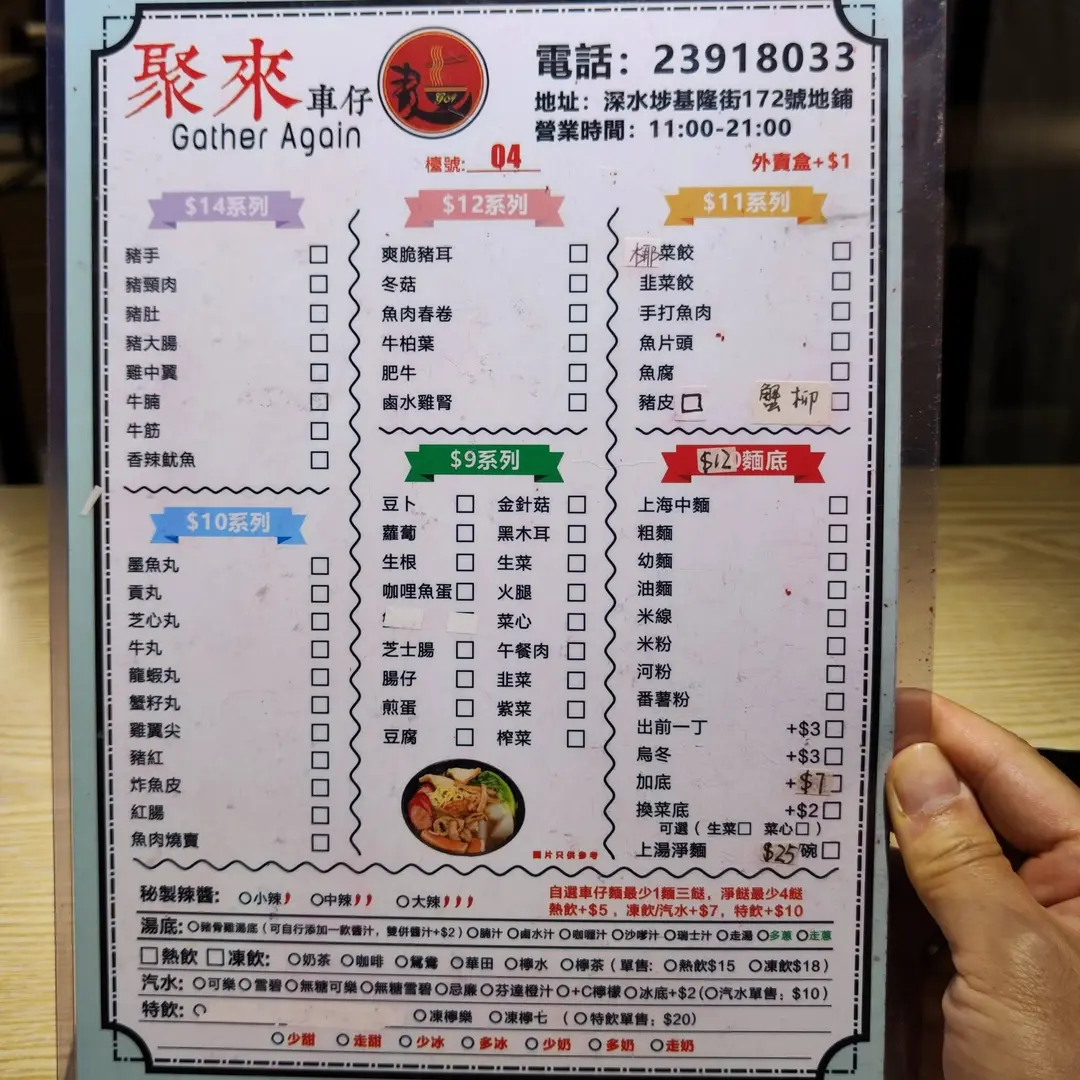 聚來車仔
Gather Again
電話：23918033
地址：深水埗基隆街172號地鋪
營業時間：11:00-21:00
檯號: 04
外賣盒+$1
$14系列
豬手
豬頸肉
豬肚
豬大腸
雞中翼
牛腩
牛筋
香辣魷魚
$10系列
墨魚丸
貢丸
芝心丸
牛丸
龍蝦丸
蟹籽丸
雞翼尖
豬紅
炸魚皮
紅腸
魚肉燒賣
$12系列
爽脆豬耳
冬菇
魚肉春卷
牛柏葉
肥牛
鹵水雞腎
$9系列
豆卜 金針菇
蘿蔔 黑木耳
生根 生菜
咖哩魚蛋 火腿
菜心
芝士腸 午餐肉
腸仔 韭菜
煎蛋 紫菜
豆腐 榨菜
圖片只供參考
$11系列
椰菜餃
韭菜餃
手打魚肉
魚片頭
魚腐
豬皮 蟹柳
$12麵底
上海中麵
粗麵
幼麵
油麵
米線
米粉
河粉
番薯粉
出前一丁 +$3
烏冬 +$3
加底 +$7
換菜底 +$2
可選（生菜 菜心）
上湯淨麵 $25碗
秘製辣醬: 小辣 中辣 大辣
自選車仔麵最少1麵三餸，淨餸最少4餸
熱飲+$5，凍飲/汽水+$7，特飲+$10
湯底: 豬骨雞湯底（可自行添加一款醬汁，雙併醬汁+$2） 腩汁 鹵水汁 咖喱汁 沙嗲汁 瑞士汁 走湯 多蔥 走蔥
熱飲 凍飲: 奶茶 咖啡 鴛鴦 華田 檸水 檸茶（單售: 熱飲$15 凍飲$18）
汽水: 可樂 雪碧 無糖可樂 無糖雪碧 忌廉 芬達橙汁 +C檸檬 冰底+$2(汽水單售: $10)
特飲: 凍檸樂 凍檸七 （特飲單售: $20）
少甜 走甜 少冰 多冰 少奶 多奶 走奶